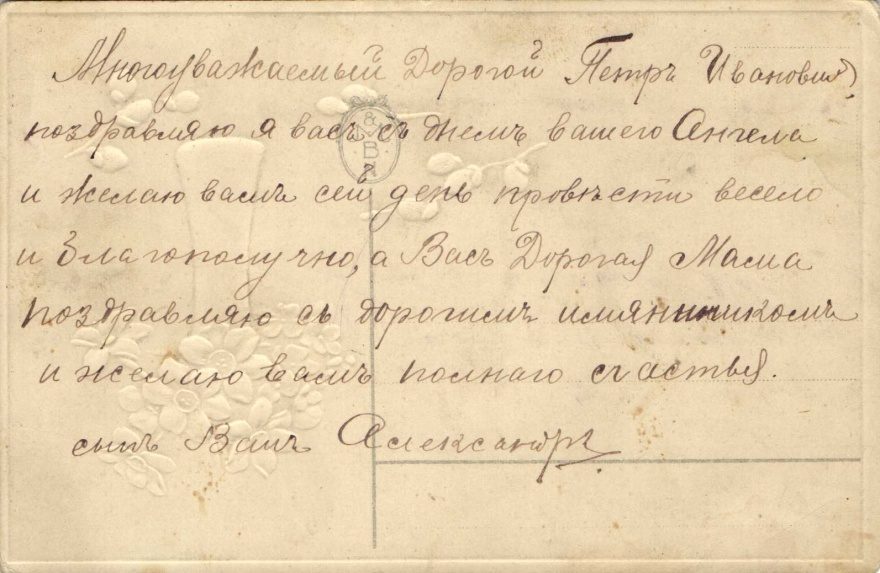 Многоуважаемый Дорогой Петръ Ивановичъ,
поздравляю я васъ съ днемъ вашего Ангела
и желаю вамъ сей день провѣсти весело
и благополучно, а Васъ Дорогая Мама
поздравляю съ дорогимъ имянинникомъ
и желаю вамъ полнаго счастья.
сынъ Вашъ Александръ